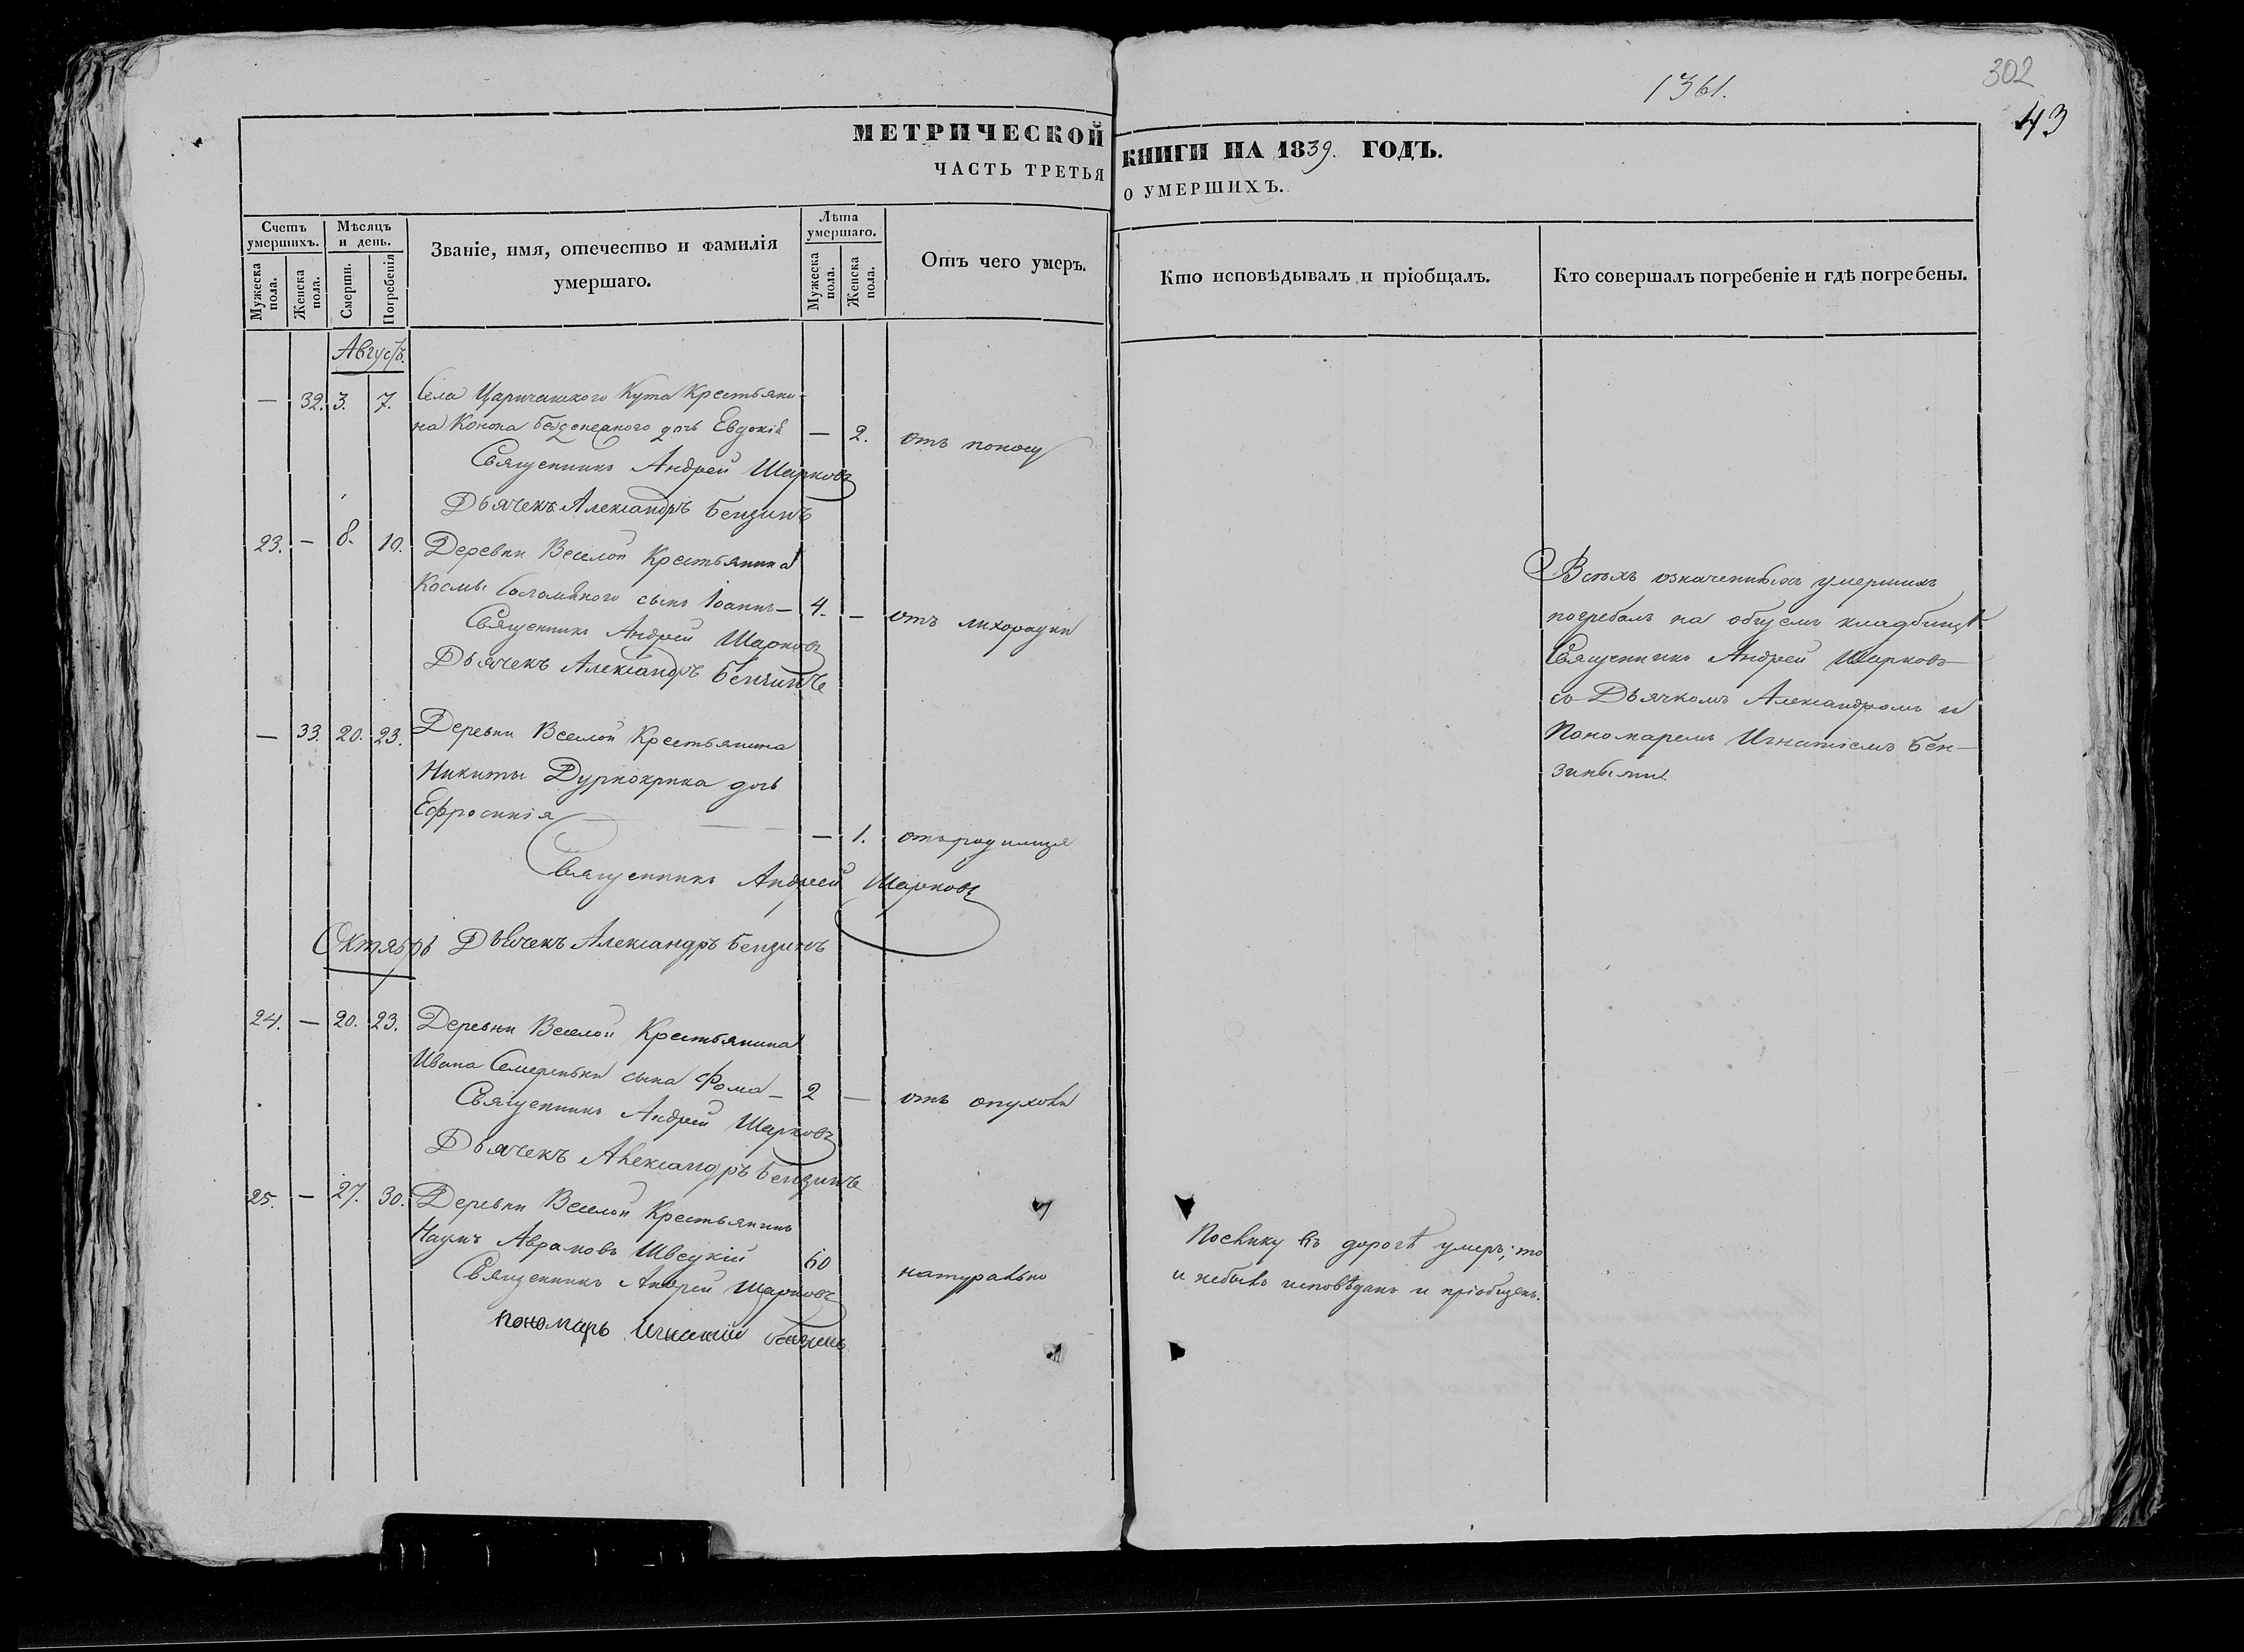 1361.
302
43
МЕТРИЧЕСКОЙ КНИГИ НА 1839. ГОДЪ.
ЧАСТЬ ТРЕТЬЯ О УМЕРШИХЪ.
Счетъ умершихъ.
Мужеска пола.
Женска пола.
Мѣсяцъ и день.
Смерти.
Погребенія
Званіе, имя, отечество и фамилія
умершаго.
Лѣта умершаго.
Мужеска пола.
Женска пола.
Отъ чего умеръ.
Кто исповѣдывалъ и пріобщалъ.
Кто совершалъ погребеніе и гдѣ погребены.
Августъ.
— 32. 3. 7. Села Царичанского Кута Крестьяни-
на Конона дочь Евдокія — 2. отъ поносу
Священникъ Андрей Шарковъ
Дьячекъ Александръ Бензинъ
23. — 8. 10. Деревни Веселой Крестьянина
Космы сынъ Іоаннъ — 4. — отъ лихорадки
Священникъ Андрей Шарковъ
Дьячекъ Александръ Бензинъ
— 33. 20. 23. Деревни Веселой Крестьянина
Никиты Дурнокрика дочь
Ефросинія — 1. отъ родимца
Священникъ Андрей Шарковъ
Октябрь
Дьячекъ Александръ Бензинъ
24. — 20. 23. Деревни Веселой Крестьянина
Ивана Семереньки сына Фома — 2 — отъ опухоли
Священникъ Андрей Шарковъ
Дьячекъ Александръ Бензинъ
25. — 27. 30. Деревни Веселой Крестьянинъ
Наумъ Аврамовъ Швецкій 60 натурально
Священникъ Андрей Шарковъ
пономарь Игнатій Бензинъ
Поелику въ дорогѣ умеръ, то
и небылъ исповѣданъ и пріобщенъ.
Всѣхъ означенныхъ умершихъ
погребалъ на общемъ кладбищѣ
Священникъ Андрей Шарковъ
съ Дьячкомъ Александромъ и
Пономаремъ Игнатіемъ Бен-
зиными.